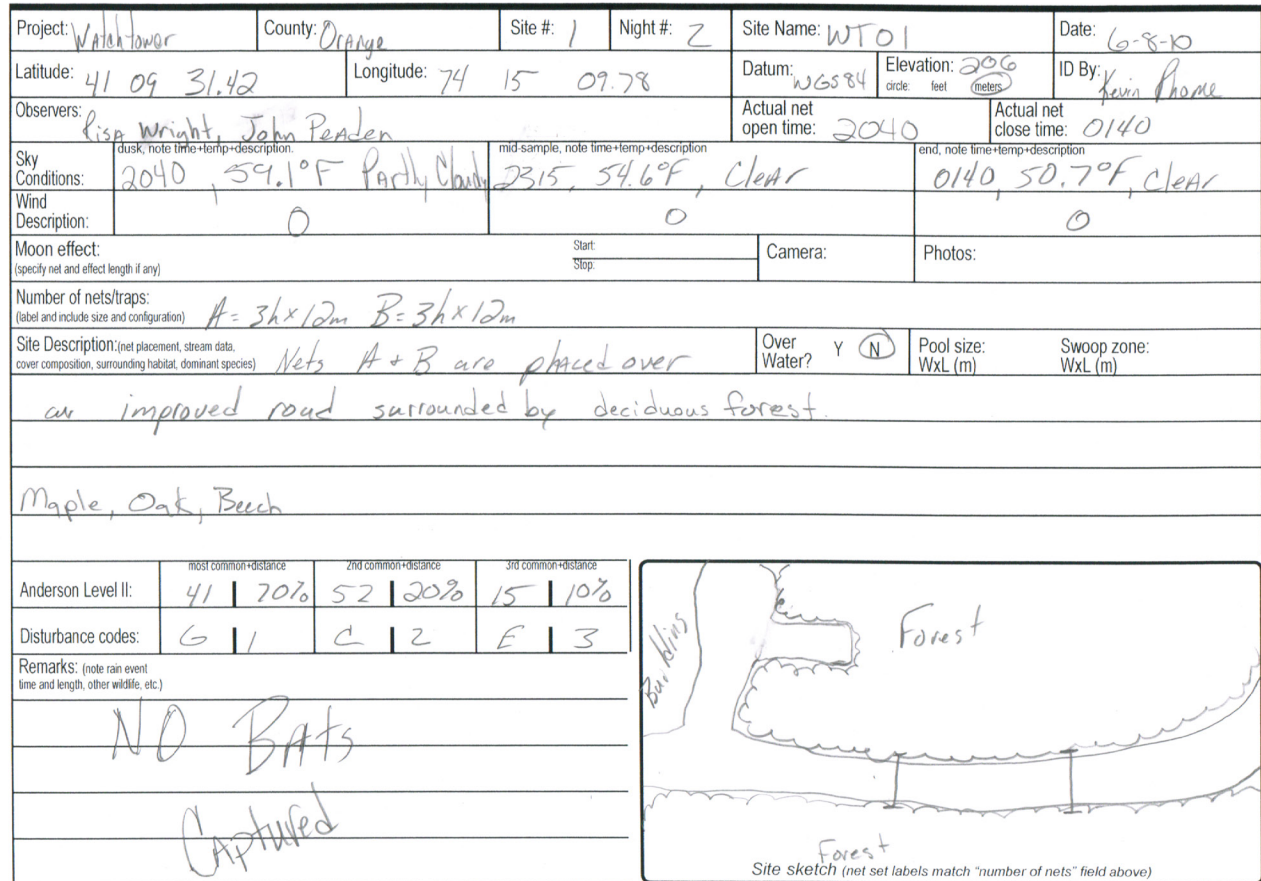 Project: Watchtower County: Orange Site #: 1 Night #: 2 Site Name: WT01 Date: 6-8-10
Latitude: 41 09 31.42 Longitude: 74 15 09.78 Datum: WGS84 Elevation: 206 circle: feet meters ID By: Kevin
Observers: Risa Wright, John Peaden Actual net open time: 2040 Actual net close time: 0140
Sky Conditions: dusk, note time+temp+description. 2040, 59.1°F Partly Cloudy mid-sample, note time+temp+description 2315, 54.6°F, Clear end, note time+temp+description 0140, 50.7°F, Clear
Wind Description: 0 0 0
Moon effect: (specify net and effect length if any) Start: Stop: Camera: Photos:
Number of nets/traps: (label and include size and configuration) A = 3h x 12m B = 3h x 12m
Site Description: (net placement, stream data, cover composition, surrounding habitat, dominant species) Nets A + B are placed over Over Water? Y N Pool size: WxL (m) Swoop zone: WxL (m)
an improved road surrounded by deciduous forest.
Maple, Oak, Beech
most common+distance 2nd common+distance 3rd common+distance
Anderson Level II: 41 | 70% 52 | 20% 15 | 10%
Disturbance codes: G | 1 C | 2 E | 3
Remarks: (note rain event time and length, other wildlife, etc.)
NO Bats
Captured
Forest
Forest
Site sketch (net set labels match "number of nets" field above)